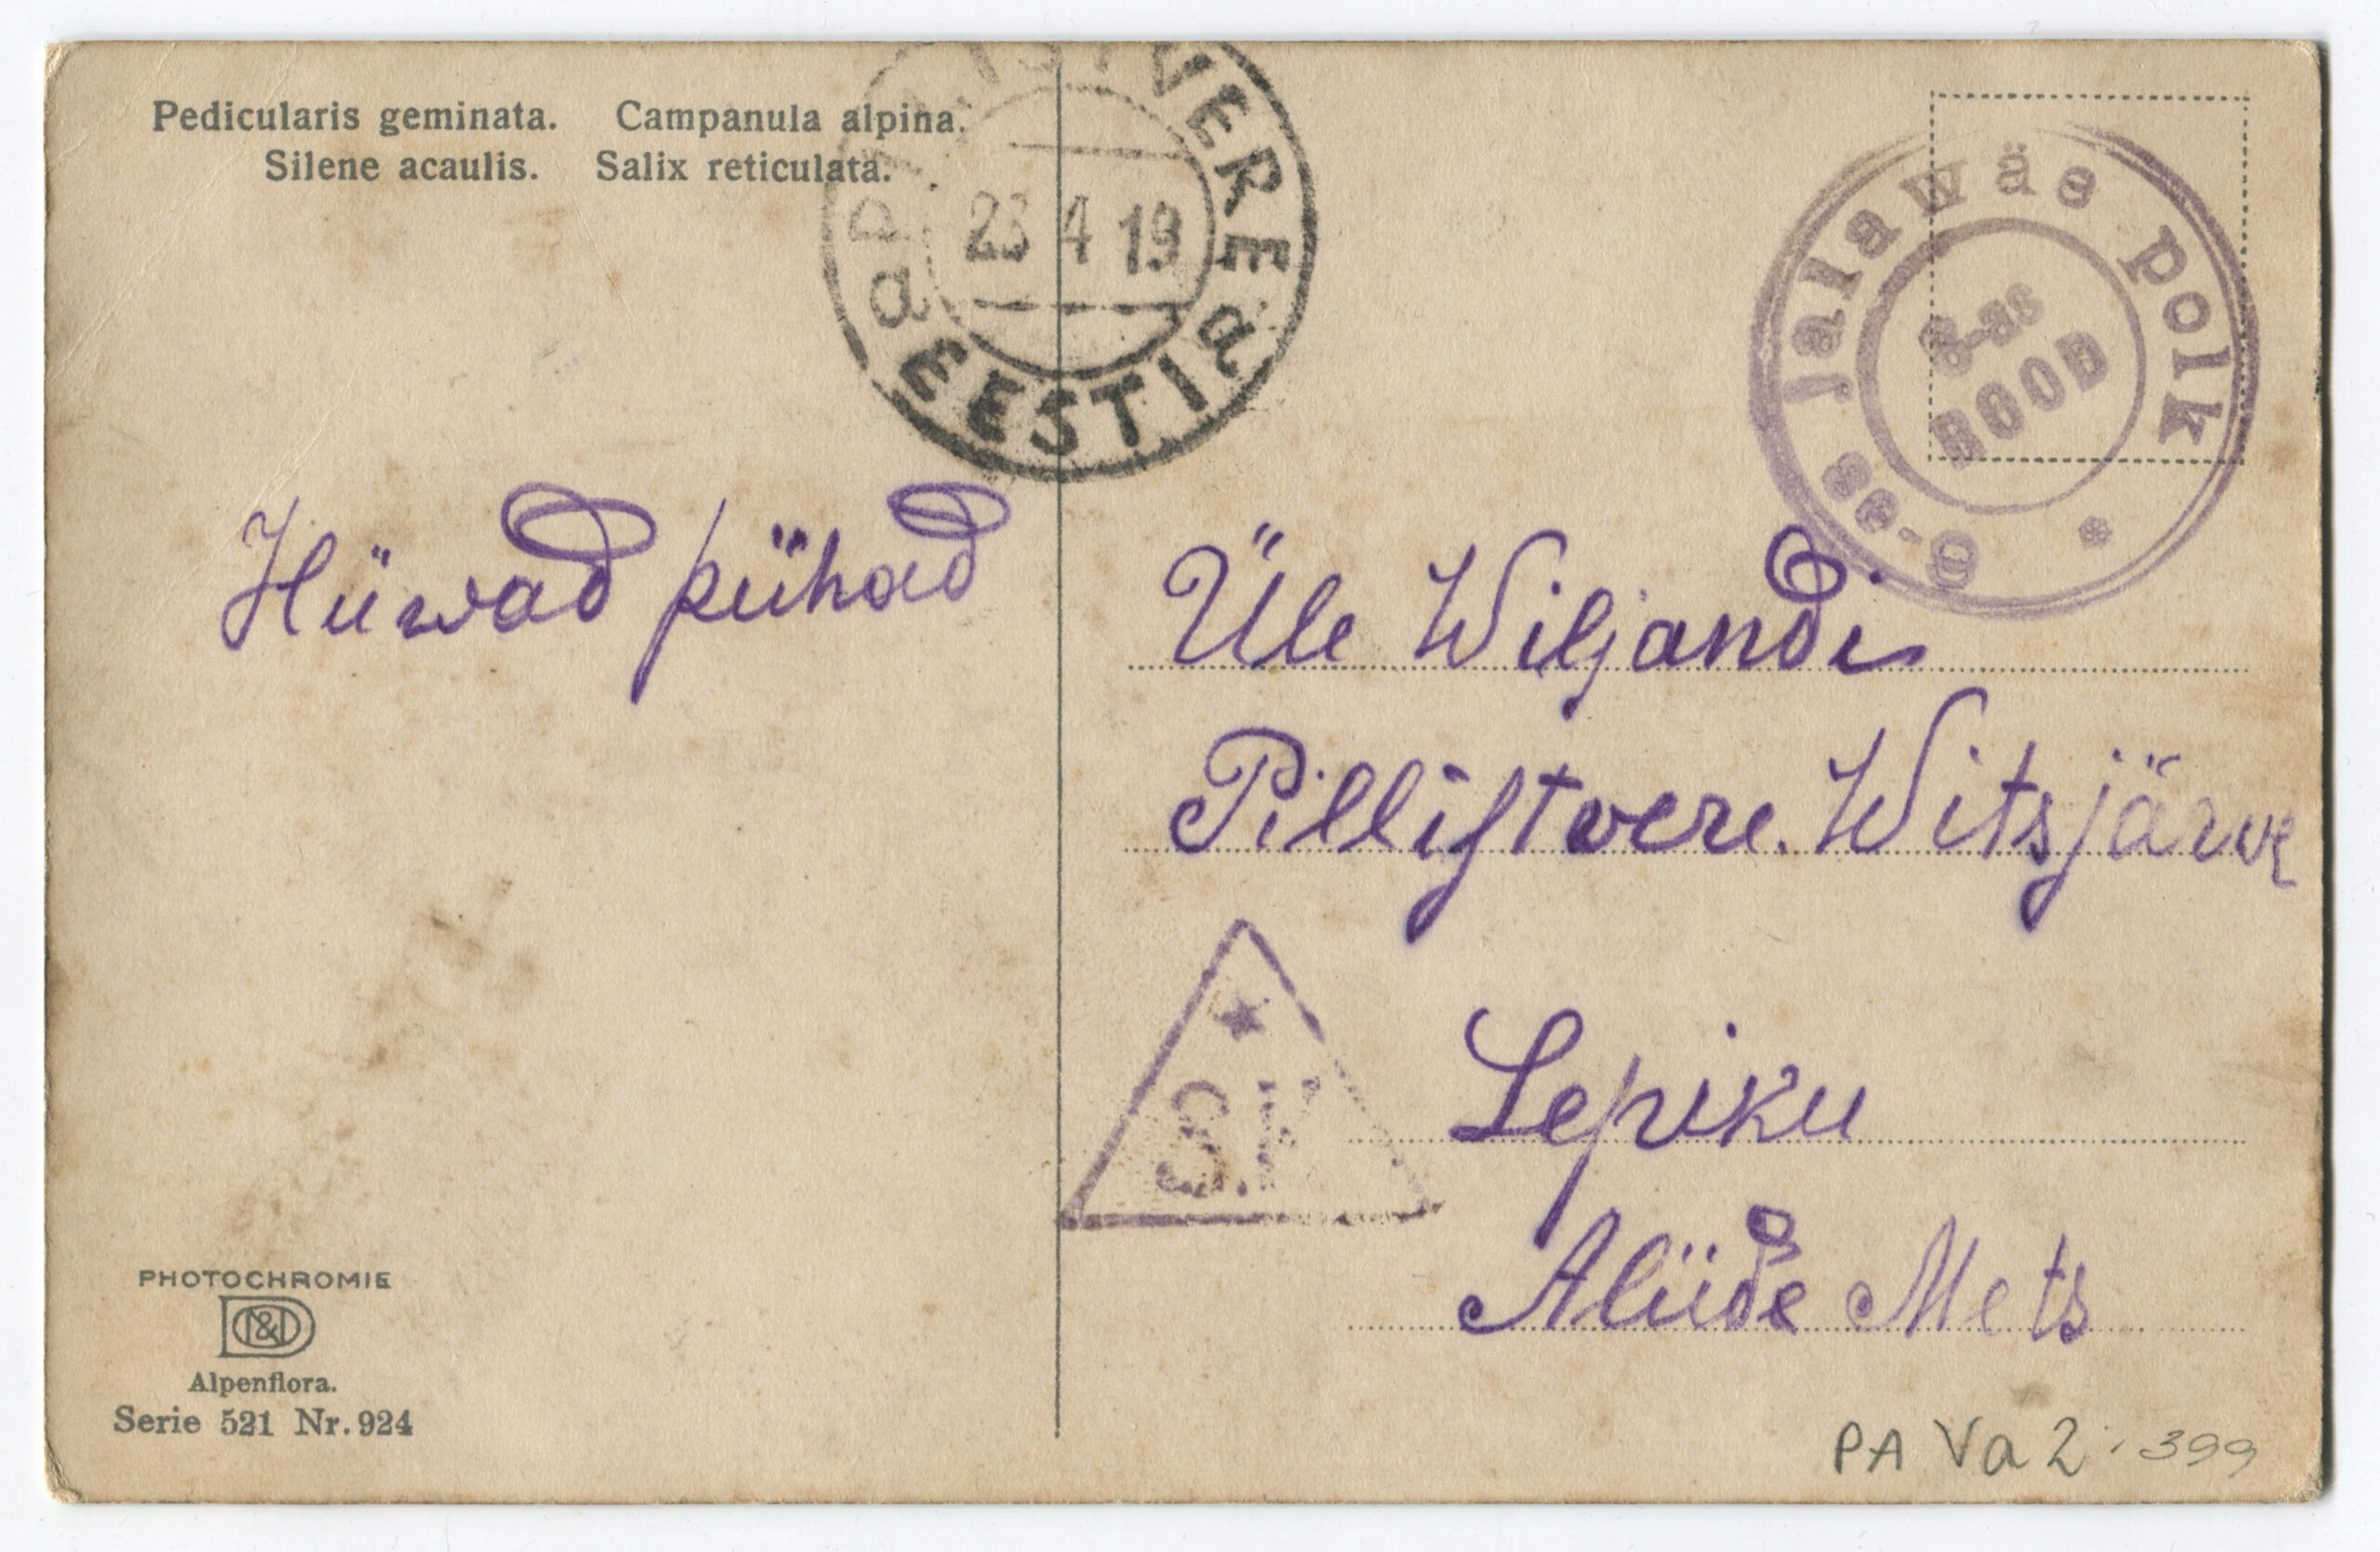 Pedicularis geminata. Campanula alpina.
Silene acaulis. Salix reticulata.
VERE
23 4 19
a EESTI a
jalawäe polk
8-as
ROOD
Hüwad pühad
Üle Wiljandi
Pilliſtwere. Witsjärwe
S.K
Lepiku
Aliide Mets
PHOTOCHROMIE
Alpenflora.
Serie 521 Nr. 924
PA Va 2 · 399